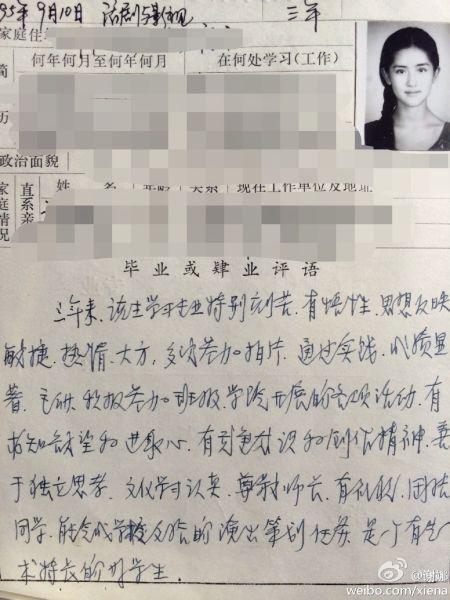 95年9月10日 话剧与影视 三年
家庭住
简 何年何月至何年何月 在何处学习(工作)
历
政治面貌
家庭情况 直系亲 姓 名 年龄 关系 现在工作单位及地址
毕业或肄业评语
三年来,该生学习专业特别刻苦,有悟性,思想反映
敏捷,热情、大方,多次参加拍片,通过实践,
著,积极参加班级、学院开展的各项活动,有
求知欲望和进取心,有创作精神,善
于独立思考,文化学习认真,尊敬师长,有礼貌,团结
同学,能完成学校交给的演出策划任务,是一个有艺
术特长的好学生。
@谢娜
weibo.com/xiena